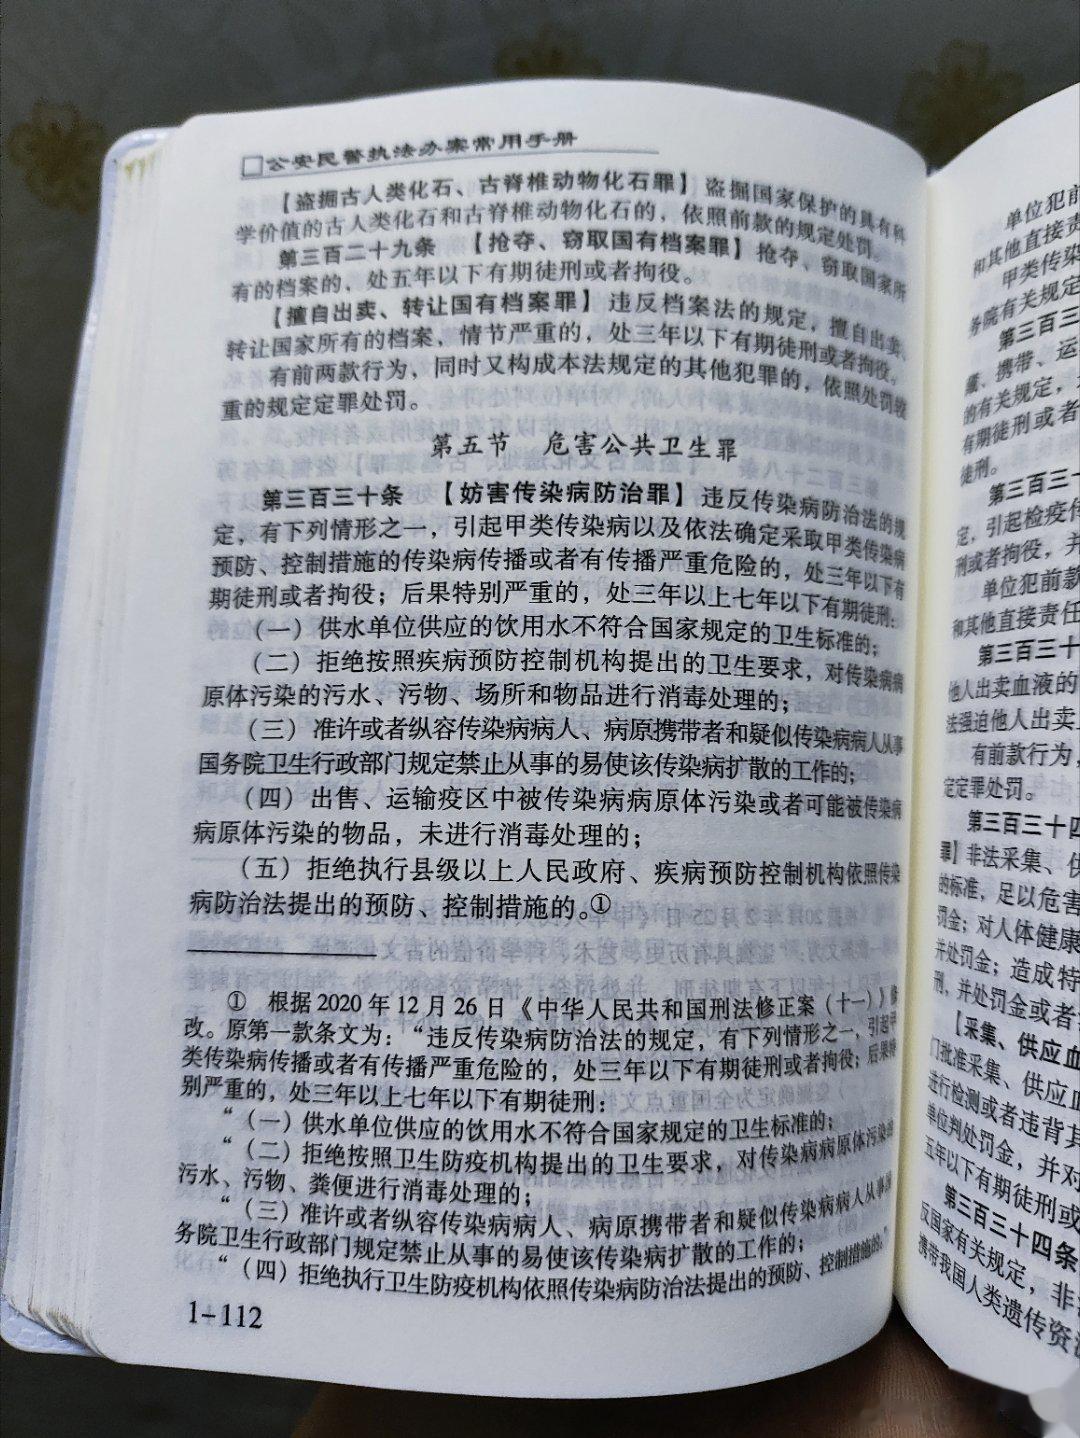 公安民警执法办案常用手册
【盗掘古人类化石、古脊椎动物化石罪】盗掘国家保护的具有科
学价值的古人类化石和古脊椎动物化石的，依照前款的规定处罚。
第三百二十九条 【抢夺、窃取国有档案罪】抢夺、窃取国家所
有的档案的，处五年以下有期徒刑或者拘役。
【擅自出卖、转让国有档案罪】违反档案法的规定，擅自出卖、
转让国家所有的档案，情节严重的，处三年以下有期徒刑或者拘役。
有前两款行为，同时又构成本法规定的其他犯罪的，依照处罚较
重的规定定罪处罚。
第五节 危害公共卫生罪
第三百三十条 【妨害传染病防治罪】违反传染病防治法的规
定，有下列情形之一，引起甲类传染病以及依法确定采取甲类传染病
预防、控制措施的传染病传播或者有传播严重危险的，处三年以下有
期徒刑或者拘役；后果特别严重的，处三年以上七年以下有期徒刑：
（一）供水单位供应的饮用水不符合国家规定的卫生标准的；
（二）拒绝按照疾病预防控制机构提出的卫生要求，对传染病病
原体污染的污水、污物、场所和物品进行消毒处理的；
（三）准许或者纵容传染病病人、病原携带者和疑似传染病病人从事
国务院卫生行政部门规定禁止从事的易使该传染病扩散的工作的；
（四）出售、运输疫区中被传染病病原体污染或者可能被传染病
病原体污染的物品，未进行消毒处理的；
（五）拒绝执行县级以上人民政府、疾病预防控制机构依照传染
病防治法提出的预防、控制措施的。①
① 根据2020年12月26日《中华人民共和国刑法修正案（十一）》修
改。原第一款条文为：“违反传染病防治法的规定，有下列情形之一，引起甲
类传染病传播或者有传播严重危险的，处三年以下有期徒刑或者拘役；后果特
别严重的，处三年以上七年以下有期徒刑：
“（一）供水单位供应的饮用水不符合国家规定的卫生标准的；
“（二）拒绝按照卫生防疫机构提出的卫生要求，对传染病病原体污染的
污水、污物、粪便进行消毒处理的；
“（三）准许或者纵容传染病病人、病原携带者和疑似传染病病人从事国
务院卫生行政部门规定禁止从事的易使该传染病扩散的工作的；
“（四）拒绝执行卫生防疫机构依照传染病防治法提出的预防、控制措施的。”
1-112
单位犯前
和其他直接责
甲类传染
务院有关规定
第三百三
藏、携带、运
的有关规定，
有期徒刑或者
徒刑。
第三百三十
定，引起检疫传
刑或者拘役，并
单位犯前款
和其他直接责任
第三百三十
他人出卖血液的
法强迫他人出卖
有前款行为，
定定罪处罚。
第三百三十四
罪】非法采集、供
的标准，足以危害
罚金；对人体健康
并处罚金；造成特
刑，并处罚金或者
【采集、供应血
门批准采集、供应血
进行检测或者违背其
单位判处罚金，并对
五年以下有期徒刑或
第三百三十四条
反国家有关规定，非
携带我国人类遗传资